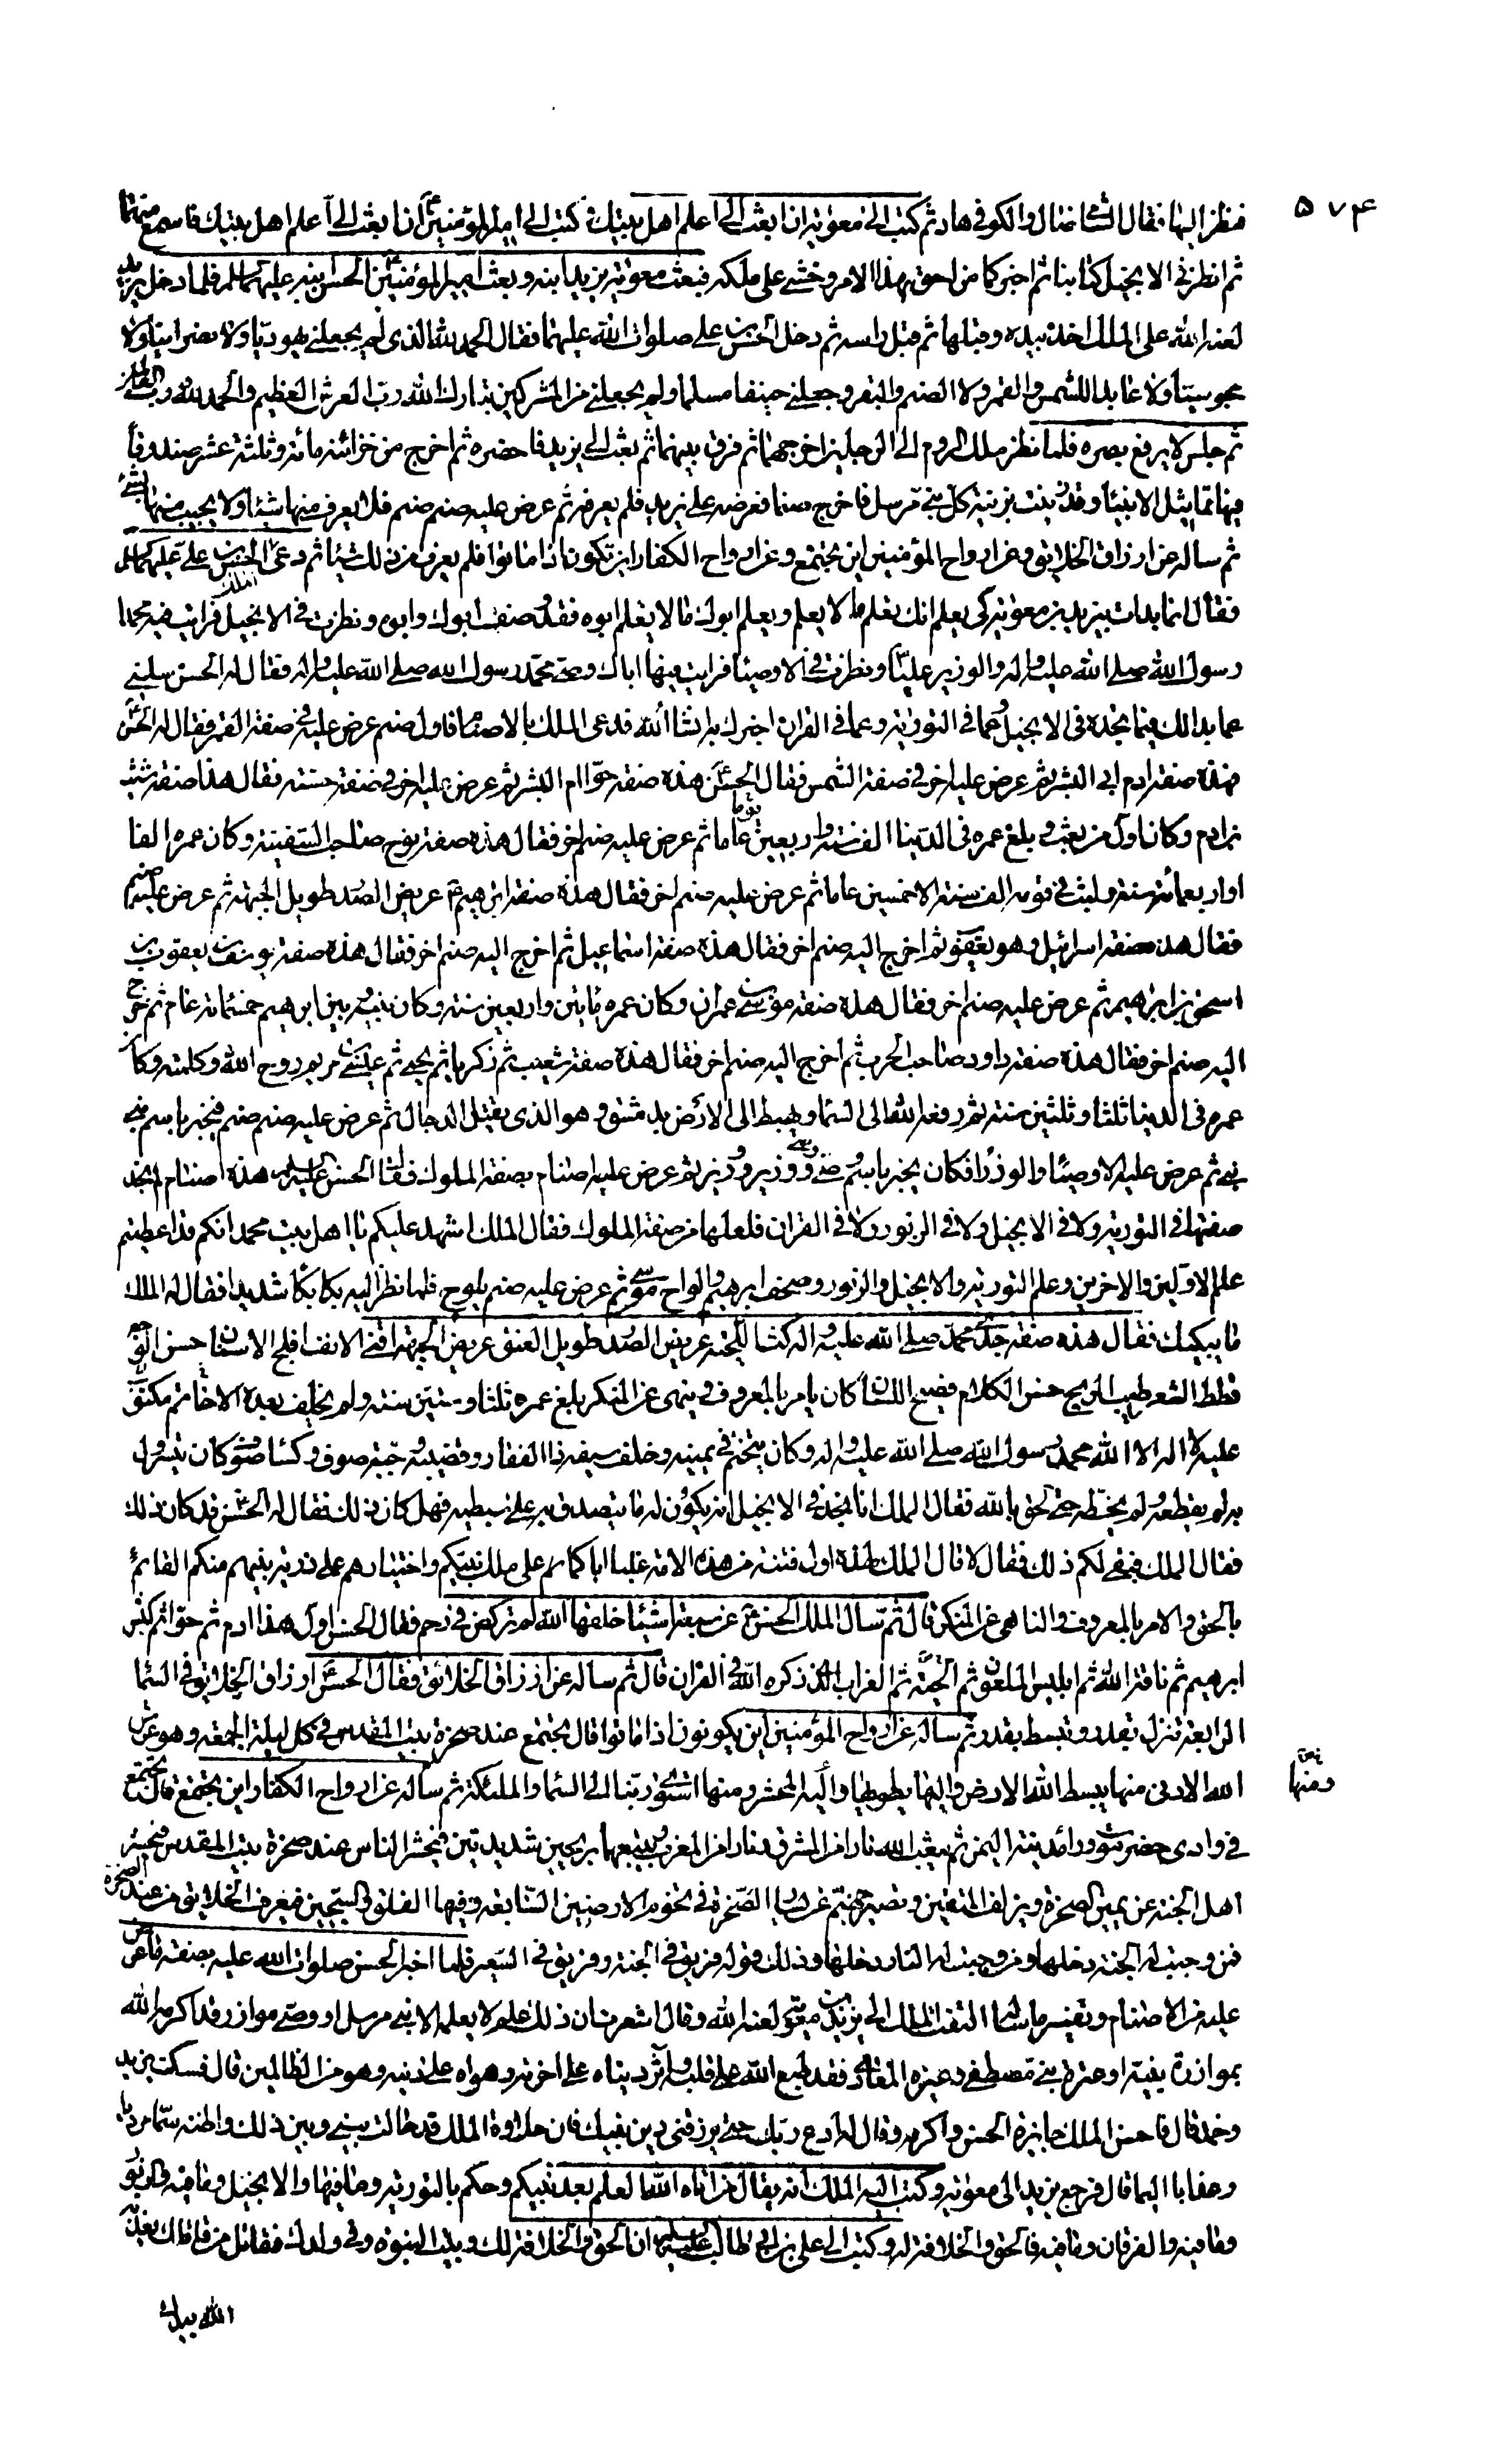 ۵۷۴
فنظر اليها فقال الشامي ضال والكوفي هاد ثم كتب الى معوية ان ابعث الى اعلم اهل بيتك وكتب الى امير المؤمنين ان ابعث الى اعلم اهل بيتك فاسمع منهما
ثم انظر في الانجيل كتابنا ثم اخبركما من احق بهذا الامر وخشى على ملكه فبعث معوية يزيد ابنه وبعث امير المؤمنين الحسن ابنه عليهما السلم فلما دخل يزيد
لعنه الله على الملك اخذ بيده وقبلها ثم قبل راسه ثم دخل الحسن بن على صلوات الله عليهما فقال الحمد لله الذى لم يجعلنى يهوديا ولا نصرانيا ولا
مجوسيا ولا عابدا للشمس والقمر ولا الصنم والبقر وجعلنى حنيفا مسلما ولم يجعلنى من المشركين تبارك الله رب العرش العظيم والحمد لله رب العالمين
ثم جلس لا يرفع بصره فلما نظر ملك الروم الى الرجلين اخرجهما ثم فرق بينهما ثم بعث الى يزيد فاحضره ثم اخرج من خزائنه مائة وثلثة عشر صندوقا
فيها تماثيل الانبياء وقد زينت بزينة كل نبى مرسل فاخرج صنما فعرضه على يزيد فلم يعرفه ثم عرض عليه صنم صنم فلا يعرف منها شيئا ولا يجيب منها بشئ
ثم ساله عن ارزاق الخلايق وعن ارواح المؤمنين اين تجتمع وعن ارواح الكفار اين تكون اذا ماتوا فلم يعرف من ذلك شيئا ثم دعى الحسن بن على عليهما السلم
فقال انما بدات بيزيد بن معوية كى يعلم انك تعلم ما لا يعلم ويعلم ابوك ما لا يعلم ابوه فقد وصف ابوك وابوه ونظرت في الانجيل فرايت فيه محمدا
رسول الله صلى الله عليه واله والوزير عليا ونظرت في الاوصياء فرايت فيها اباك وصى محمد رسول الله صلى الله عليه واله فقال له الحسن سلنى
عما بدا لك فيما تجده في الانجيل وعما في التورية وعما في القران اخبرك به انشاء الله فدعى الملك بالاصنام فاول صنم عرض عليه في صفة القمر فقال له الحسن
هذه صفة ادم ابى البشر ثم عرض عليه اخر في صفة الشمس فقال الحسن هذه صفة حوا ام البشر ثم عرض عليه اخر في صفة حسنة فقال هذا صفة شيث
بن ادم وكان اول من بعث و بلغ عمره في الدنيا الف سنة واربعين عاما ثم عرض عليه صنم اخر فقال هذه صفة نوح صاحب السفينة وكان عمره الفا
اواربعمائة سنة ولبث في قومه الف سنة الا خمسين عاما ثم عرض عليه صنم اخر فقال هذه صفة ابرهيم عريض الصدر طويل الجبهة ثم عرض عليه صنم
فقال هذه صفة اسرائيل وهو يعقوب ثم اخرج اليه صنم اخر فقال هذه صفة اسماعيل ثم اخرج اليه صنم اخر فقال هذه صفة يوسف بن يعقوب بن
اسحق بن ابراهيم ثم عرض عليه صنم اخر فقال هذه صفة موسى بن عمران وكان عمره مأتين واربعين سنة وكان بينه وبين ابرهيم خمسمائة عام ثم خرج
اليه صنم اخر فقال هذه صفة داود صاحب الحرب ثم اخرج اليه صنم اخر فقال هذه صفة شعيب ثم زكريا ثم يحيى ثم عيسى بن مريم روح الله وكلمته وكان
عمره في الدنيا ثلثا وثلثين سنة ثم رفعه الله الى السماء ويهبط الى الارض بدمشق وهو الذى يقتل الدجال ثم عرض عليه صنم صنم فيخبر باسم نبى
نبى ثم عرض عليه الاوصياء والوزراء فكان يخبر باسم وصى وصى ووزير وزير ثم عرض عليه اصنام بصفة الملوك فقال الحسن عليه السلم هذه اصنام لم نجد
صفتها في التورية ولا في الانجيل ولا في الزبور ولا في القران فلعلها من صفة الملوك فقال الملك اشهد عليكم يا اهل بيت محمد انكم قد اعطيتم
علم الاولين والاخرين وعلم التورية والانجيل والزبور وصحف ابرهيم والواح موسى ثم عرض عليه صنم يلوح فلما نظر اليه بكا بكاء شديدا فقال له الملك
ما يبكيك فقال هذه صفة جدى محمد صلى الله عليه واله كث اللحية عريض الصدر طويل العنق عريض الجبهة اقنى الانف افلج الاسنان حسن الوجه
قطط الشعر طيب الريح حسن الكلام فصيح اللسان كان يامر بالمعروف وينهى عن المنكر بلغ عمره ثلثا وستين سنة ولم يخلف بعده الا خاتم مكتوب
عليه لا اله الا الله محمد رسول الله صلى الله عليه واله وكان يتختم في يمينه وخلف سيفه ذا الفقار وقضيبه وجبة صوف وكساء صوف كان يتسرول
به لم يقطعه ولم يخيطه حتى لحق بالله فقال الملك انا نجد في الانجيل انه يكون له ما يتصدق به على سبطيه فهل كان ذلك فقال له الحسن قد كان ذلك
فقال الملك فبقى لكم ذلك فقال لا قال الملك لهذه اول فتنة من هذه الامة غلبا اباكما ثم على ملك نبيكم واختيارهم على ذرية نبيهم منكم القائم
بالحق والامر بالمعروف والناهى عن المنكر قال ثم سال الملك الحسن عن سبعة اشياء خلقها الله لم تركض في رحم فقال الحسن اول هذا ادم ثم حوا ثم كبش
ابرهيم ثم ناقة الله ثم ابليس الملعون ثم الحية ثم الغراب الذى ذكره الله في القران قال ثم ساله عن ارزاق الخلائق فقال الحسن ارزاق الخلايق في السماء
الرابعة تنزل بقدر وتبسط بقدر ثم ساله عن ارواح المؤمنين اين يكونون اذا ماتوا قال تجتمع عند صخرة بيت المقدس في كل ليلة الجمعة وهو عرش
الله الادنى منها يبسط الله الارض واليها يطويها واليه المحشر ومنها استوى ربنا الى السماء والملئكة ثم ساله عن ارواح الكفار اين تجتمع قال تجتمع
في وادى حضرموت وراء مدينة اليمن ثم يبعث الله نارا من المشرق ونارا من المغرب ويتبعها بريحين شديدتين فيحشر الناس عند صخرة بيت المقدس فيحشر
اهل الجنة عن يمين الصخرة ويزلف المتقين وتصير جهنم عن يسار الصخرة في تخوم الارضين السابعة وفيها الفلق والسجين فيعرف الخلايق من عند الصخرة
فمن وجبت له الجنة دخلها ومن وجبت له النار دخلها وذلك قوله فريق في الجنة وفريق في السعير فلما اخبر الحسن صلوات الله عليه بصفة ما عرض
عليه من الاصنام وتفسير ما سئل التفت الملك الى يزيد بن معوية لعنه الله وقال اشعرت ان ذلك علم لا يعلمه الا نبى مرسل او وصى موازر قد اكرمه الله
بموازرة نبيه او عترة نبى مصطفى وغيره المعادى فقد طبع الله على قلبه واثر دنياه على اخرته وهواه على دينه وهو من الظالمين قال فسكت يزيد
وخمد قال فاحسن الملك جائزة الحسن واكرمه وقال له ادع ربك حتى يرزقنى دين نبيك فان حلاوة الملك قد حالت بينى وبين ذلك واظنه سما مرديا
وعذابا اليما قال فرجع يزيد الى معوية وكتب اليه الملك انه يقال من اتاه الله العلم بعد نبيكم وحكم بالتورية وما فيها والانجيل وما فيه والزبور
وما فيه والفرقان وما فيه فالحق والخلافة له وكتب الى على بن ابى طالب عليه السلم ان الحق والخلافة لك وبيت النبوة وفى ولدك فقاتل من قاتلك يعذبه
الله بيدك